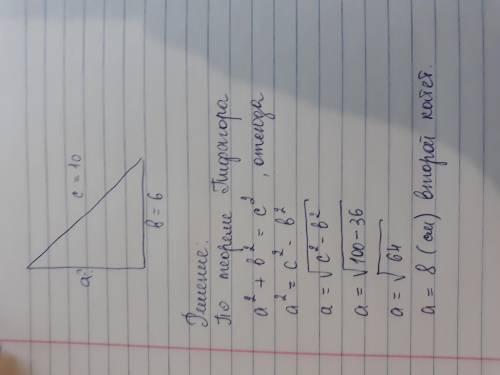 c = 10
a?
b = 6
Решение:
По теореме Пифагора
a² + b² = c², отсюда
a² = c² - b²
a = √c² - b²
a = √100 - 36
a = √64
a = 8 (см) второй катет.